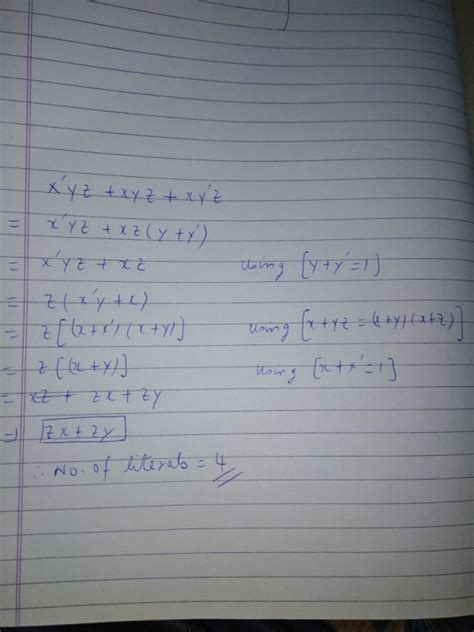 x'yz + xyz + xy'z
= x'yz + xz(y+y')
= x'yz + xz using [y+y'=1]
= z(x'y+x)
= z[(x+x')(x+y)] using [x+yz = (x+y)(x+z)]
= z[(x+y)] using [x+x'=1]
= xz + zx + zy
=) zx + zy
∴ No. of literals = 4